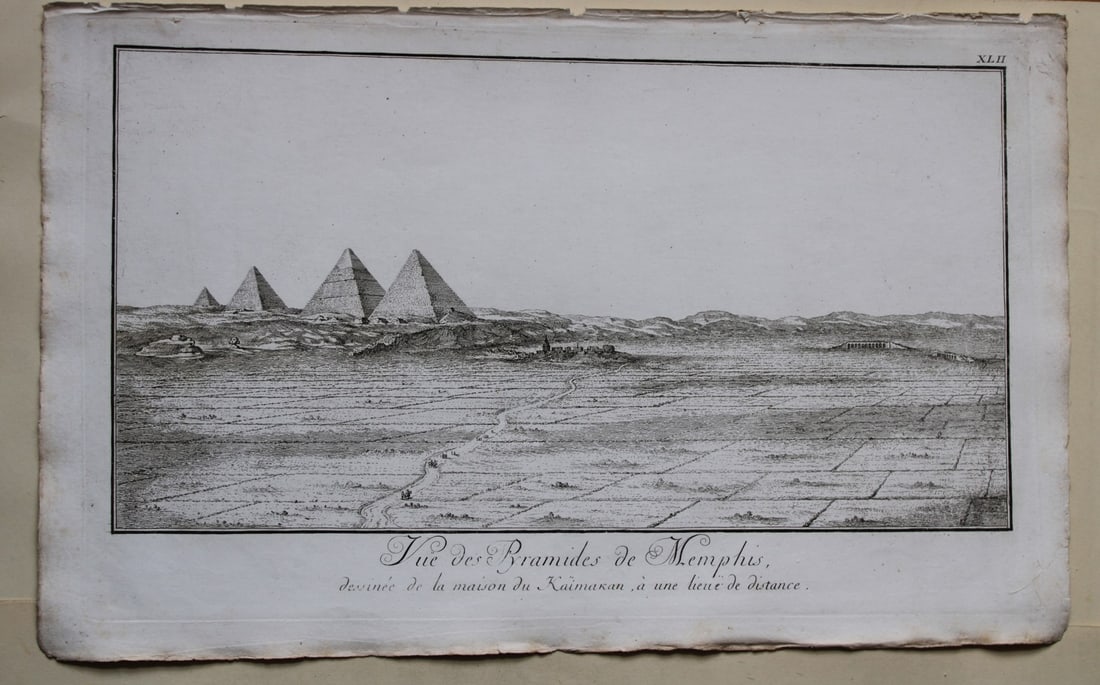 XLII
Vue des Pyramides de Memphis,
dessinée de la maison du Kaïmakan, à une lieuë de distance.